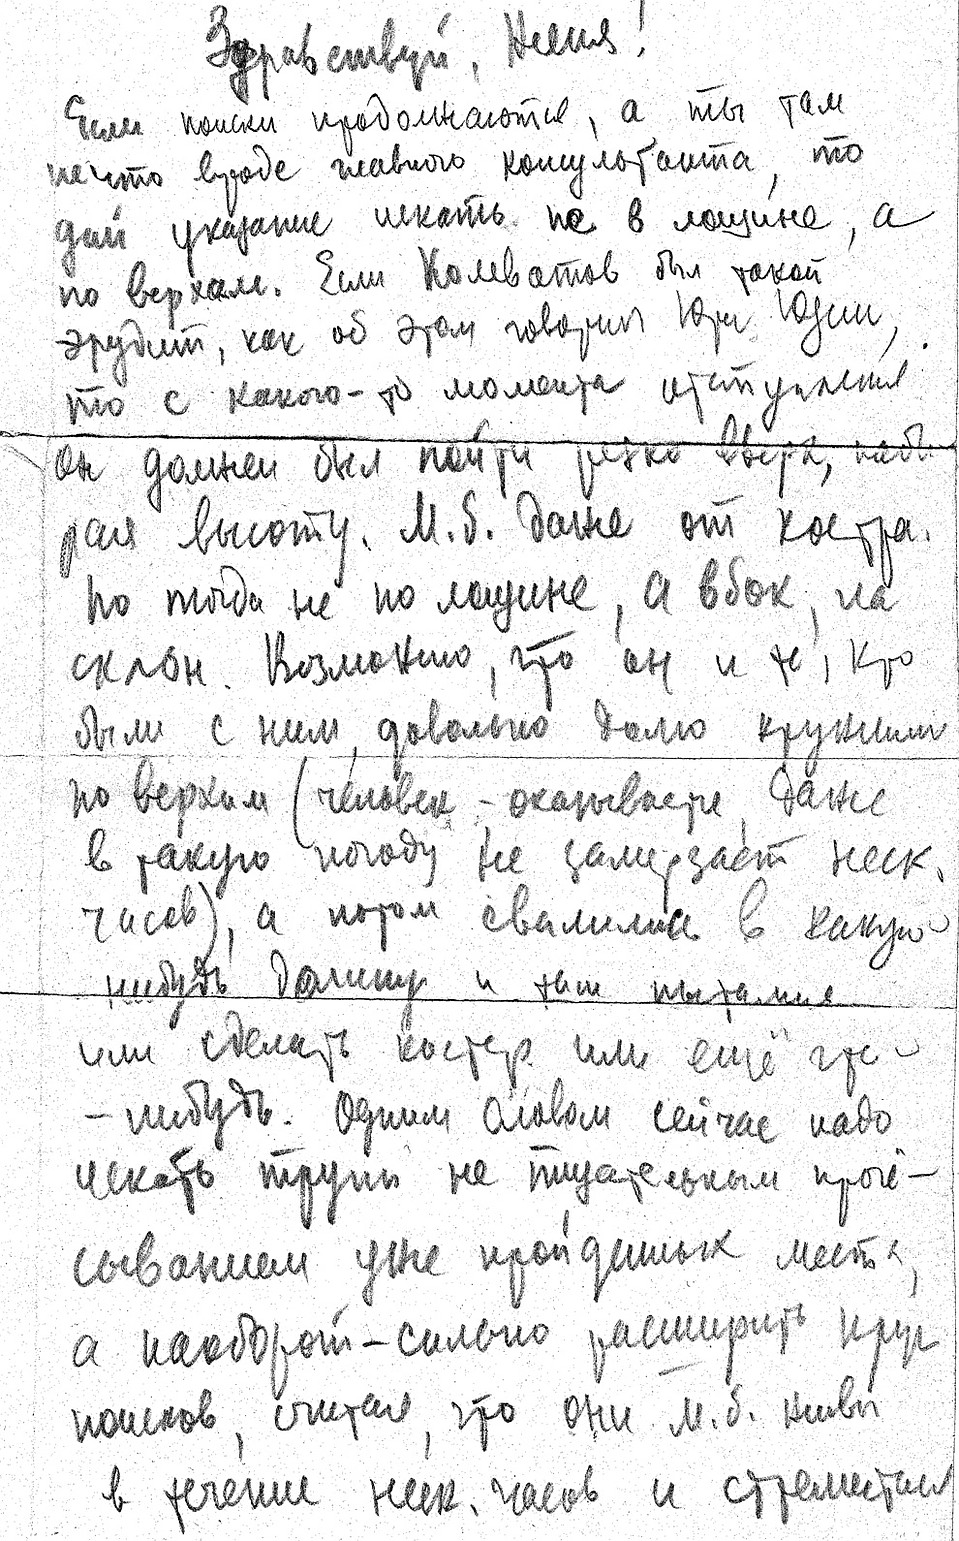 Здравствуй, Женя!
Если поиски продолжаются, а ты там
нечто вроде главного консультанта, то
дай указание искать не в лощине, а
по верхам. Если Колеватов был такой
эрудит, как об этом говорил Юра Юдин,
то с какого-то момента отступления
он должен был пойти резко вверх, наби-
рая высоту. М.б. даже от костра.
Но тогда не по лощине, а вбок, на
склон. Возможно, что он и те, кто
были с ним, довольно долго кружили
по верхам (человек - оказывается, даже
в такую погоду не замерзает неск.
часов), а потом свалились в какую-
нибудь долину и там пытались
или сделать костер или ещё что-
-нибудь. Одним словом сейчас надо
искать трупы не тщательным прочё-
сыванием уже пройденных мест,
а наоборот - сильно расширить круг
поисков, считая, что они м.б. живы
в течение неск. часов и стремиться